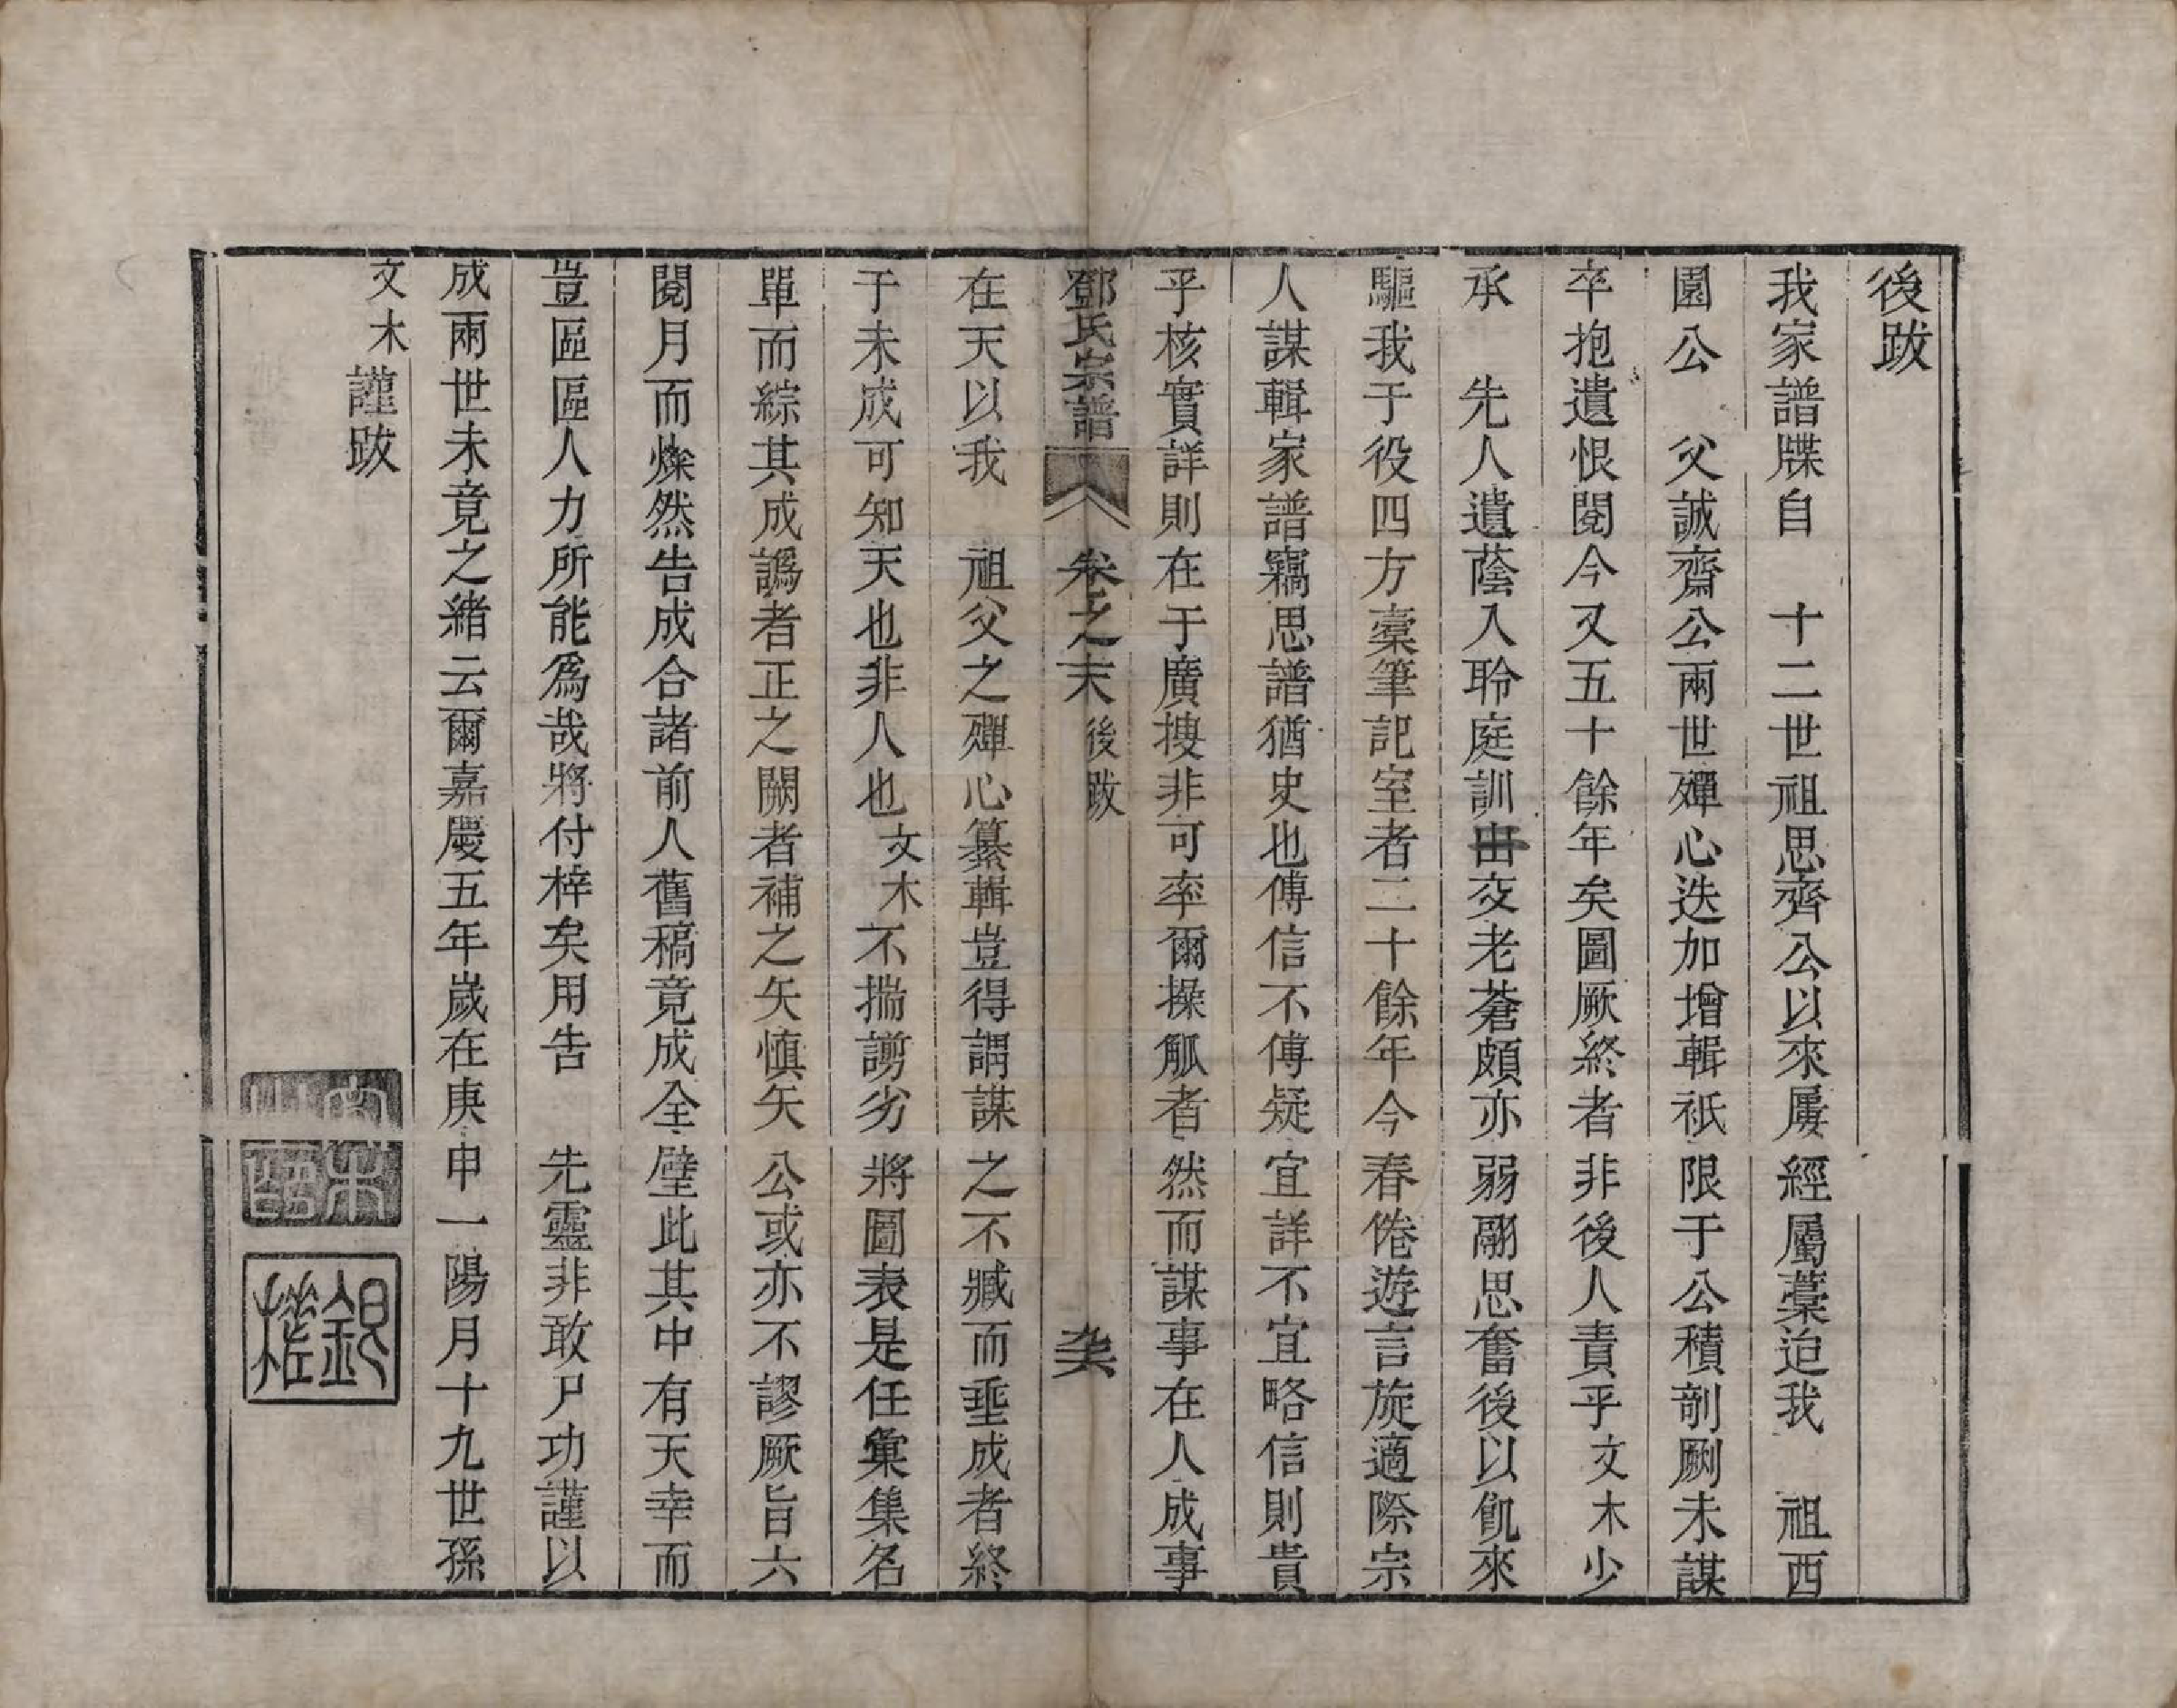 後跋
我家譜牒自　十二世祖思齊公以來屢經屬藁迨我　祖西
園公　父誠齋公兩世殫心迭加增輯祇限于公積剞劂未謀
卒抱遺恨閱今又五十餘年矣圖厥終者非後人責乎文木少
承　先人遺蔭入聆庭訓出交老蒼頗亦弱翮思奮後以飢來
驅我于役四方橐筆記室者二十餘年今春倦遊言旋適際宗
人謀輯家譜竊思譜猶史也傳信不傳疑宜詳不宜略信則貴
乎核實詳則在于廣搜非可率爾操觚者然而謀事在人成事
鄧氏宗譜　卷之末　後跋
在天以我　祖父之殫心纂輯豈得謂謀之不臧而垂成者終
于未成可知天也非人也文木不揣謭劣將圖表是任彙集名
單而綜其成譌者正之闕者補之矢慎矢公或亦不謬厥旨六
閱月而燦然告成合諸前人舊稿竟成全璧此其中有天幸而
豈區區人力所能爲哉將付梓矣用告　先靈非敢尸功謹以
成兩世未竟之緒云爾嘉慶五年歲在庚申一陽月十九世孫
文木謹跋